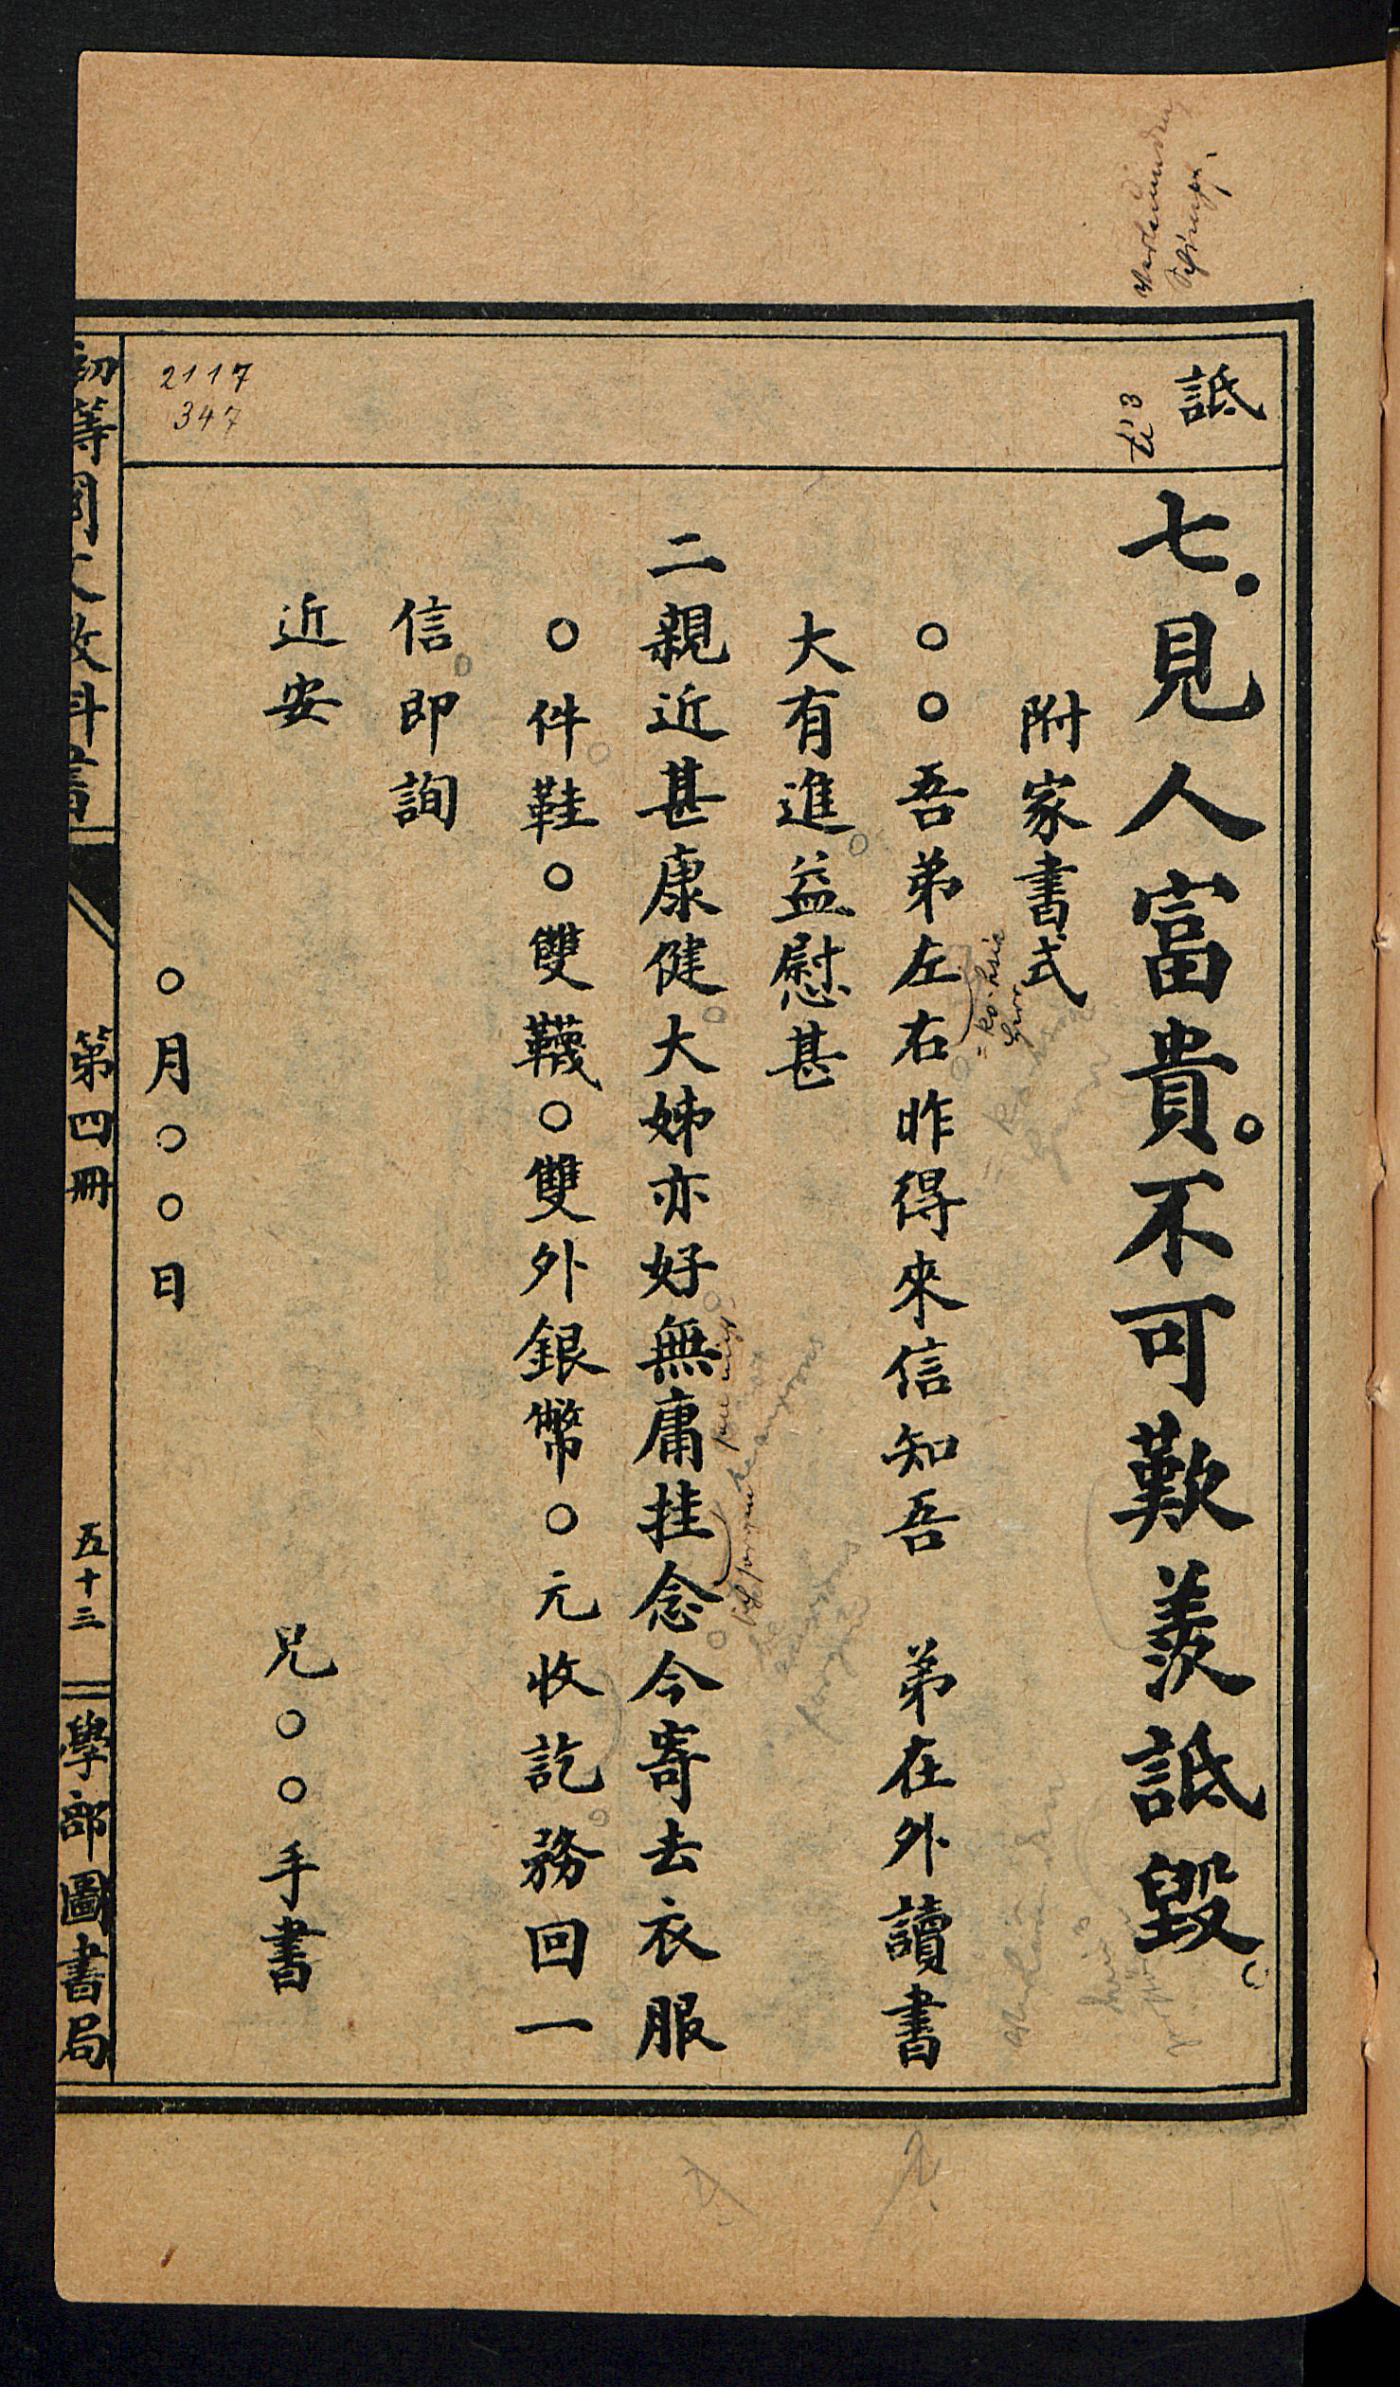 詆
ti³
七.見人富貴。不可歎羨詆毀。
附家書式
○○吾弟左右昨得來信知吾 弟在外讀書
大有進益慰甚
二親近甚康健大姊亦好無庸挂念今寄去衣服
○件鞋○雙韈○雙外銀幣○元收訖務回一
信即詢
近安
兄○○手書
○月○○日
2117
347
初等國文教科書
第四冊
五十三
學部圖書局